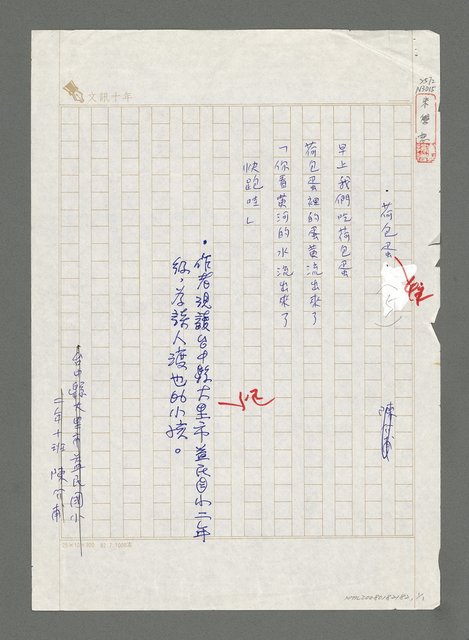 文訊十年
・荷包蛋・
早上我們吃荷包蛋
荷包蛋裡的蛋黃流出來了
「你看黃河的水流出來了
快跑哇」
・作者現讀台中縣大里市益民國小二年
級,為詩人渡也的小孩。
台中縣大里市益民國小
二年十班 陳
25×12=300 82.7.1000本